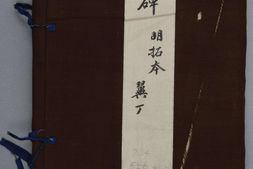 碑
明拓本
翼丁